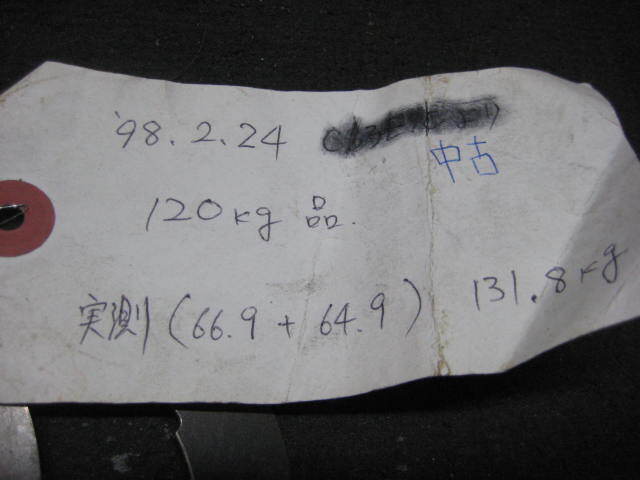 '98.2.24
中古
120kg 品.
実測(66.9+64.9) 131.8kg